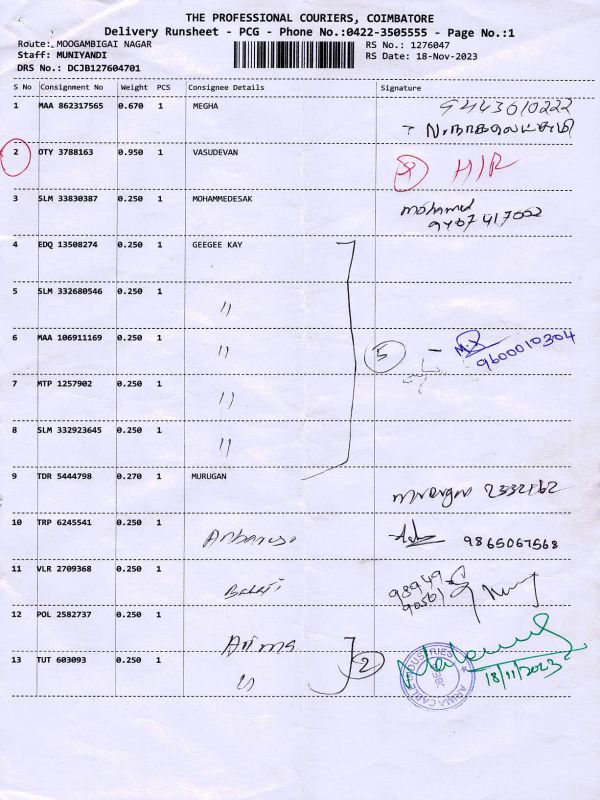 THE PROFESSIONAL COURIERS, COIMBATORE
Delivery Runsheet - PCG - Phone No.:0422-3505555 - Page No.:1
Route: MOOGAMBIGAI NAGAR RS No.: 1276047
Staff: MUNIYANDI RS Date: 18-Nov-2023
DRS No.: DCJB127604701
S No Consignment No Weight PCS Consignee Details Signature
1 MAA 862317565 0.670 1 MEGHA 9443610222
2 DTY 3788163 0.950 1 VASUDEVAN H/R
3 SLM 33830387 0.250 1 MOHAMMEDESAK mohamed
4 EDQ 13508274 0.250 1 GEEGEE KAY
5 SLM 332680546 0.250 1 "
6 MAA 106911169 0.250 1 " 5 9600010304
7 MTP 1257902 0.250 1 "
8 SLM 332923645 0.250 1 "
9 TDR 5444798 0.270 1 MURUGAN
10 TRP 6245541 0.250 1 9865067568
11 VLR 2709368 0.250 1 98949
12 POL 2582737 0.250 1
13 TUT 603093 0.250 1 " 2 18/11/2023